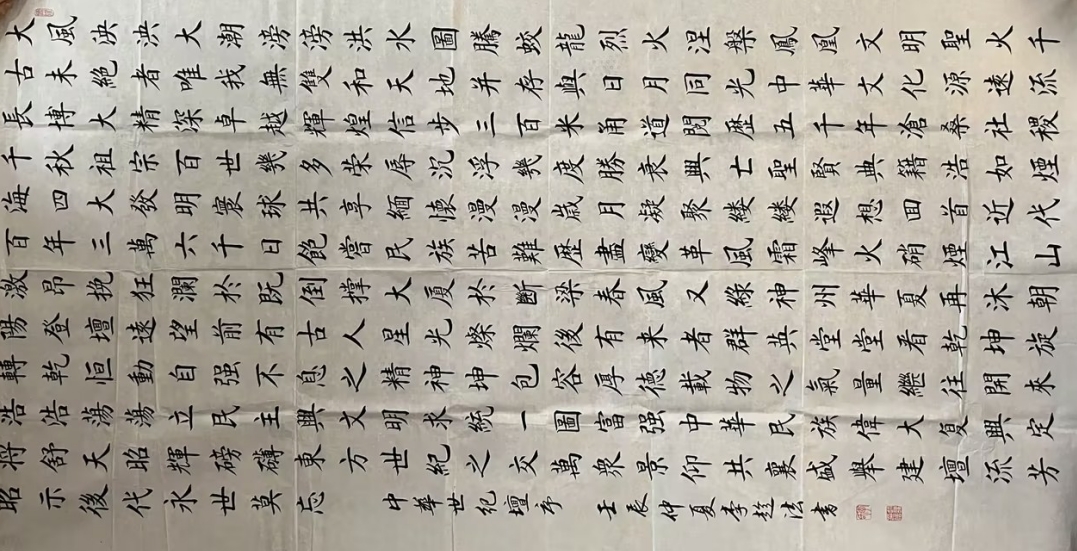 大風泱泱大潮滂滂洪水圖騰蛟龍烈火涅槃鳳凰文明聖火千
古未絕者唯我無雙和天地并存與日月同光中華文化源遠流
長博大精深卓越輝煌信步三百米甬道閱歷五千年滄桑社稷
千秋祖宗百世幾多榮辱沉浮幾度勝衰興亡聖賢典籍浩如煙
海四大發明寰球共享緬懷漫漫歲月凝聚縷縷遐想囬首近代
百年三萬六千日飽嘗民族苦難歷盡變革風霜峰火硝煙江山
激昂挽狂瀾於既倒撐大厦於斷梁春風又綠神州華夏再沐朝
陽登壇遠望前有古人星光燦爛後有来者群英堂堂看乾坤旋
轉乾恒動自强不息之精神坤包容厚德載物之氣量繼往開来
浩浩蕩蕩立民主興文明求統一圖富强中華民族偉大复興定
將舒天昭輝磅礴東方世紀之交萬衆景仰共襄盛舉建壇流芳
昭示後代永世莫忘 中華世紀壇序 壬辰仲夏李法書